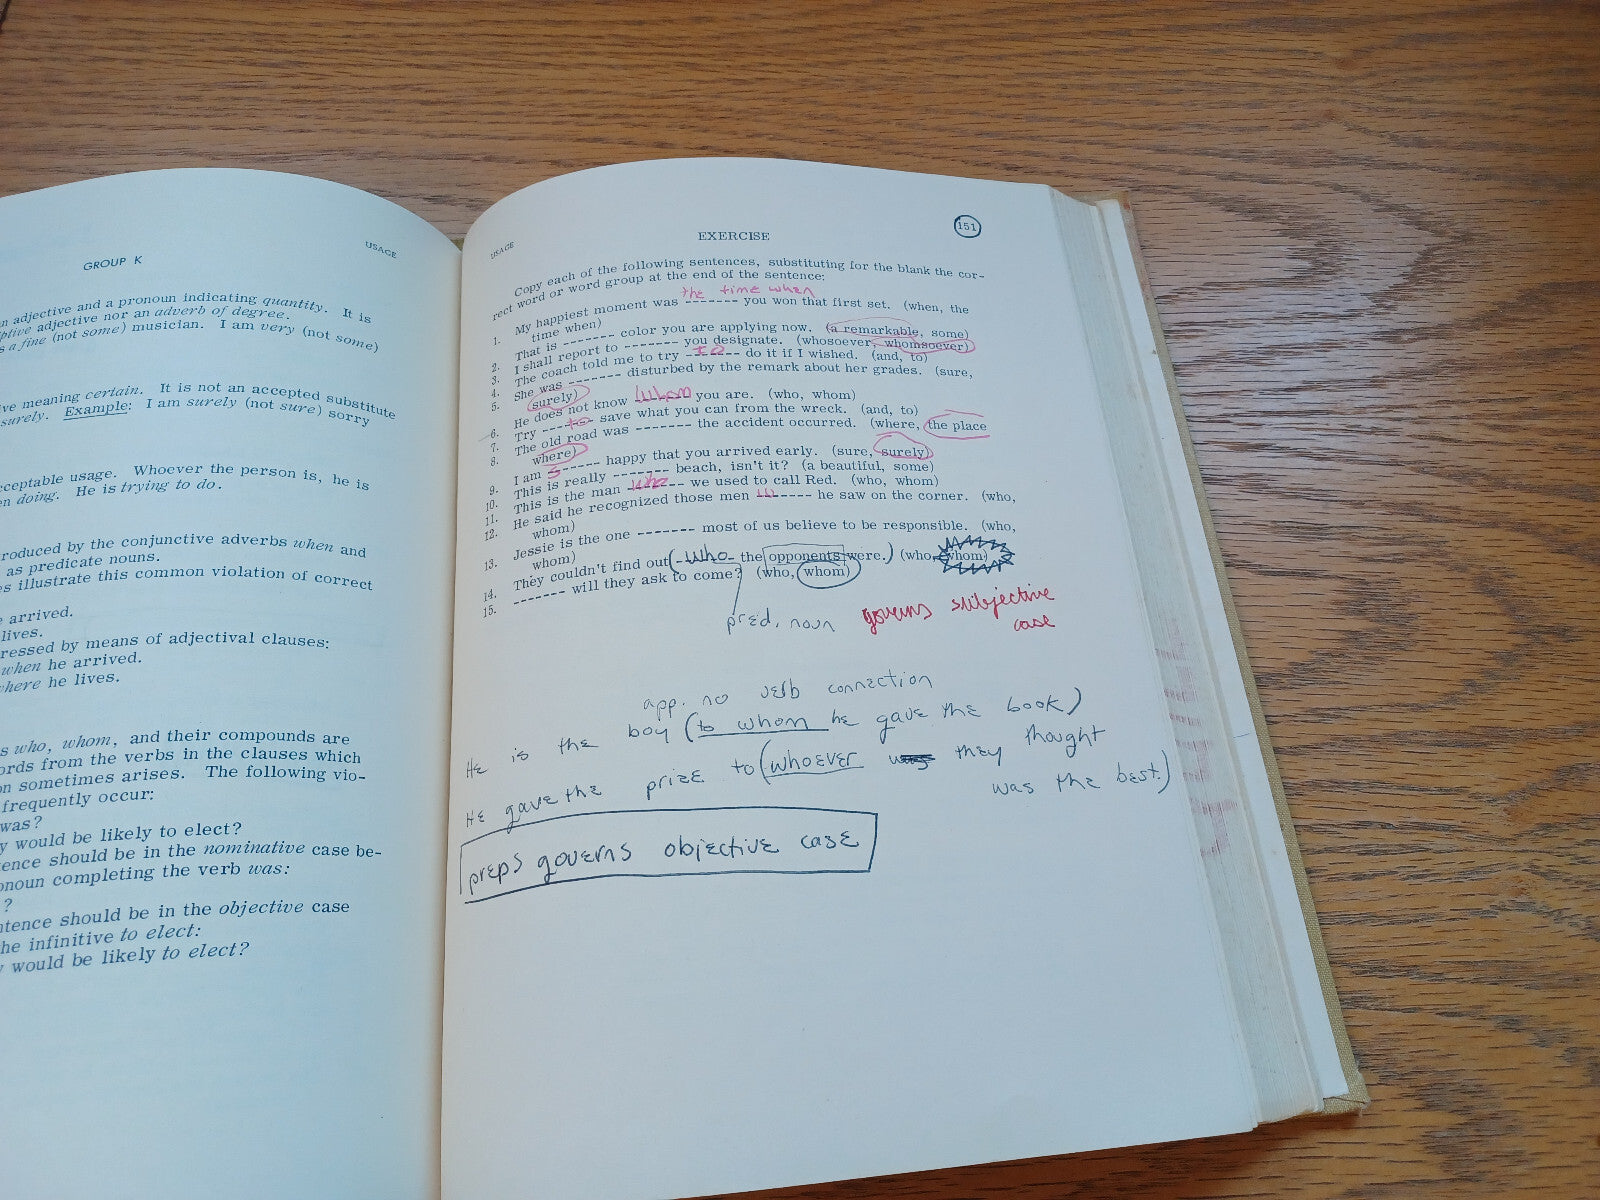 USAGE
GROUP K
n adjective and a pronoun indicating quantity. It is
ptive adjective nor an adverb of degree.
s a fine (not some) musician. I am very (not some)
ve meaning certain. It is not an accepted substitute
surely. Example: I am surely (not sure) sorry
cceptable usage. Whoever the person is, he is
en doing. He is trying to do.
roduced by the conjunctive adverbs when and
as predicate nouns.
es illustrate this common violation of correct
e arrived.
lives.
ressed by means of adjectival clauses:
when he arrived.
where he lives.
s who, whom, and their compounds are
ords from the verbs in the clauses which
on sometimes arises. The following vio-
frequently occur:
was?
y would be likely to elect?
tence should be in the nominative case be-
onoun completing the verb was:
?
ntence should be in the objective case
he infinitive to elect:
y would be likely to elect?
USAGE
EXERCISE
151
Copy each of the following sentences, substituting for the blank the cor-
rect word or word group at the end of the sentence:
the time when
1. My happiest moment was ------- you won that first set. (when, the
time when)
2. That is ------- color you are applying now. (a remarkable, some)
3. I shall report to ------- you designate. (whosoever, whomsoever)
4. The coach told me to try - to -- do it if I wished. (and, to)
5. She was ------- disturbed by the remark about her grades. (sure,
surely)
6. He does not know whom you are. (who, whom)
7. Try --- to - save what you can from the wreck. (and, to)
8. The old road was ------- the accident occurred. (where, the place
where)
9. I am s------ happy that you arrived early. (sure, surely)
10. This is really ------- beach, isn't it? (a beautiful, some)
11. This is the man who -- we used to call Red. (who, whom)
12. He said he recognized those men ------- he saw on the corner. (who,
whom)
13. Jessie is the one ------- most of us believe to be responsible. (who,
whom)
14. They couldn't find out (- who - the opponents were.) (who, whom)
15. ------- will they ask to come? (who, whom)
pred. noun governs subjective
case
app. no verb connection
He is the boy (to whom he gave the book)
He gave the prize to (whoever was they thought
was the best.)
preps governs objective case